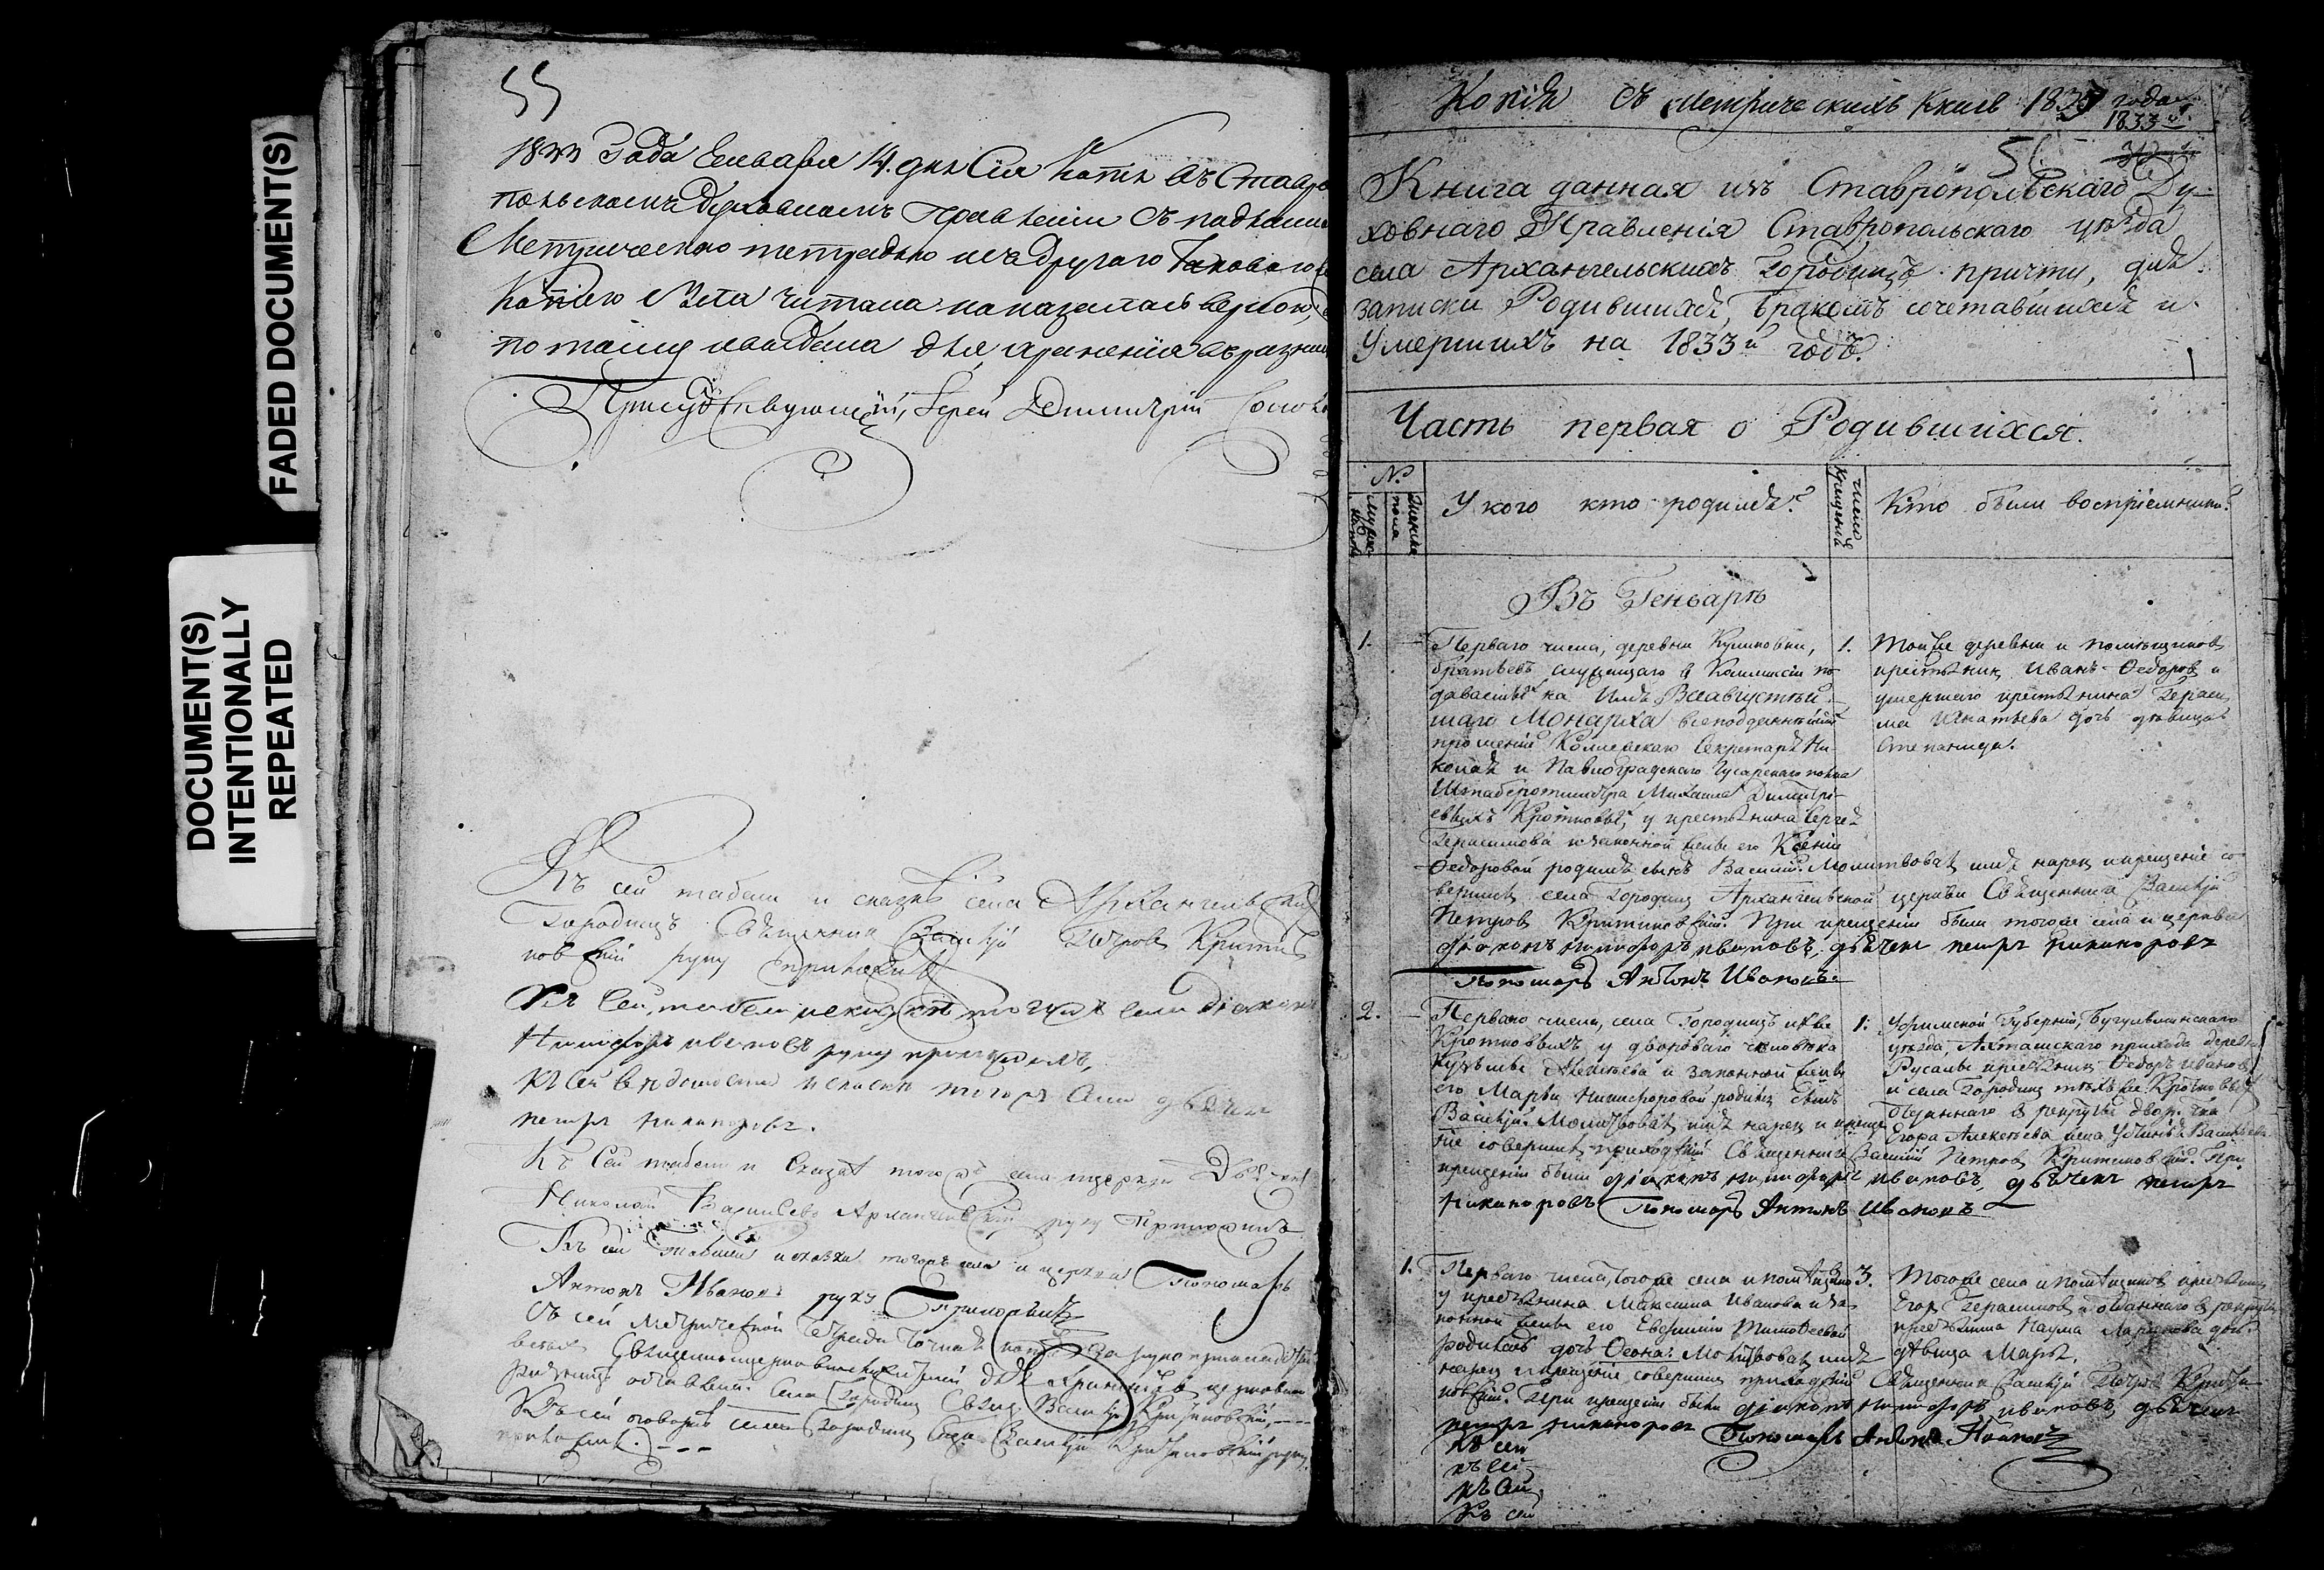 FADED DOCUMENT(S)
DOCUMENT(S)
INTENTIONALLY
REPEATED
55
1833 Года Генваря 14. дня Сия Копія въ Ставро
польскомъ Духовномъ Правленіи съ
Метрическою тетрадью и съ другою таковою
Копіею чтана и оказалась верною,
по тому и выдана для храненія въ
Присудствующій, Іерей Димитрій
Къ сей табели и сказкѣ села Архангельскихъ
Городищъ Священникъ Василій Петровъ Критин
новскій руку приложилъ
Къ Сей табели и сказкѣ того жъ села діаконъ
Никифоръ ивановъ руку приложилъ,
къ сей ведомости и сказки тогожъ села дьячекъ
петръ никаноровъ.
Къ Сей табели и Сказкѣ тогожъ села и церкви
Николай Васильевъ Архангельскій руку Приложилъ
Къ сей табели и сказки тогожъ села и церкви Пономарь
Антонъ Ивановъ руку Приложилъ
Съ сей Метрической тетради точная копія за
села Городищъ Свящ. Василій Критиновскій
Къ сей села Городищъ Свящ. Василій Критиновскій руку
приложилъ.
Копія съ Метрическихъ Книгъ 1833 года
1833й
56
Книга данная изъ Ставропольскаго Ду-
ховнаго Правленія Ставропольскаго уѣзда
села Архангельскихъ Городищъ причту, для
записки Родившихся, Бракомъ сочетавшихся и
Умершихъ на 1833й годъ.
1
Часть первая о Родившихся.
№
Мужеска пола
Женска пола
У кого кто родился?
число крещенія
Кто были воспріемники?
Въ Генварѣ
1.
Перваго числа, деревни Куликовки,
братьевъ служащаго въ Коммисіи по
даваемыхъ на Имя Всеавгустѣй-
шаго Монарха всеподданнѣйшихъ
прошеній Коллежскаго Секретаря Ни-
колая и Павлоградскаго Гусарскаго полка
Штабсротмистра Михаила Димитрі-
евыхъ Кротковыхъ, у крестьянина Сергея
Герасимова и законной жены его Ксеніи
Ѳедоровой родился сынъ Василій. Молитвовалъ имя нарек и крещеніе со-
вершилъ села Городищъ Архангельской церкви Священникъ Василій
Петровъ Критиновскій. При крещеніи были тогоже села и церкви
діаконъ никифоръ ивановъ, дьячекъ петръ никаноровъ
Пономарь Антонъ Ивановъ.
1.
Тойже деревни и помѣщиковъ
крестьянинъ Иванъ Ѳедоровъ и
умершаго крестьянина Гераси
ма Игнатьева дочь дѣвица
Степанида.
2.
Перваго числа, села Городищъ
Кротковыхъ у двороваго человѣка
Кузьмы Алексѣева и законной жены
его Марѳы Никифоровой родился сынъ
Василій. Молитвовалъ имя нарек и креще
ніе совершилъ приходскій Священникъ Василій Петровъ Критиновскій. При
крещеніи были діаконъ никифоръ ивановъ, дьячекъ петръ
никаноровъ Пономарь Антонъ Ивановъ
1.
Уфимской Губерніи, Бугульминскаго
уѣзда, Акташскаго прихода деревни
Ѳедоръ Ивановъ
и села Городищъ тѣхъ же Кротковыхъ
отданнаго въ рекруты двор. чел.
Егора Алексѣева жена Устинья Васильева.
1.
Перваго числа, тогоже села и помѣщиковъ
у крестьянина Максима Иванова и за-
конной жены его Евѳиміи Тимоѳеевой
родилась дочь Ѳеона. Молитвовалъ имя
нарек и крещеніе совершилъ приходскій Священникъ Василій Петровъ Крити
новскій. При крещеніи были діаконъ никифоръ ивановъ, дьячекъ
петръ никаноровъ Пономарь Антонъ Ивановъ
3.
Тогоже села и помѣщиковъ крестьянинъ
Егоръ Герасимовъ и отданнаго въ рекруты
крестьянина Наума Ларионова дочь
дѣвица Марья.
къ сей
къ сей
къ сей
Къ сей